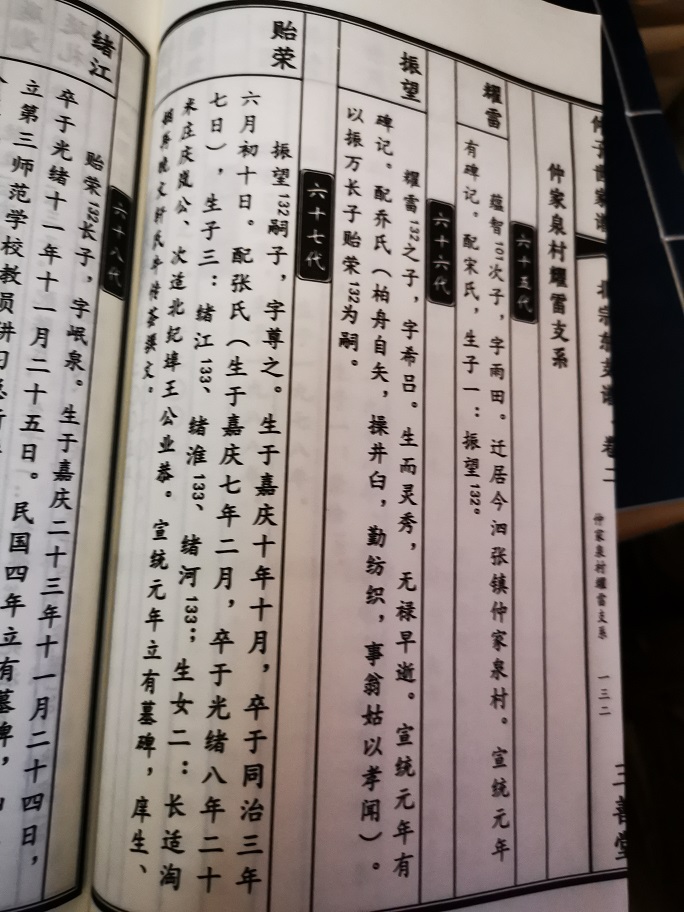 仲子世家谱
卷二
仲家泉村耀雷支系
一三二
三善堂
仲家泉村耀雷支系
六十五代
耀雷
蕴智131次子，字雨田。迁居今泗张镇仲家泉村。宣统元年
有碑记。配宋氏，生子一：振望132。
六十六代
振望
耀雷132之子，字希吕。生而灵秀，无禄早逝。宣统元年有
碑记。配乔氏（柏舟自矢，操井臼，勤纺织，事翁姑以孝闻）。
以振万长子贻荣132为嗣。
六十七代
贻荣
振望132嗣子，字尊之。生于嘉庆十年十月，卒于同治三年
六月初十日。配张氏（生于嘉庆七年二月，卒于光绪八年二十
七日），生子三：绪江133、绪淮133、绪河133；生女二：长适淘
米庄庆岚公、次适北纪埠王公业恭。宣统元年立有墓碑，庠生、
撰文。
六十八代
绪江
贻荣132长子，字岷泉。生于嘉庆二十三年十一月二十四日，
卒于光绪十一年十一月二十五日。民国四年立有墓碑，
立第三师范学校教员讲习